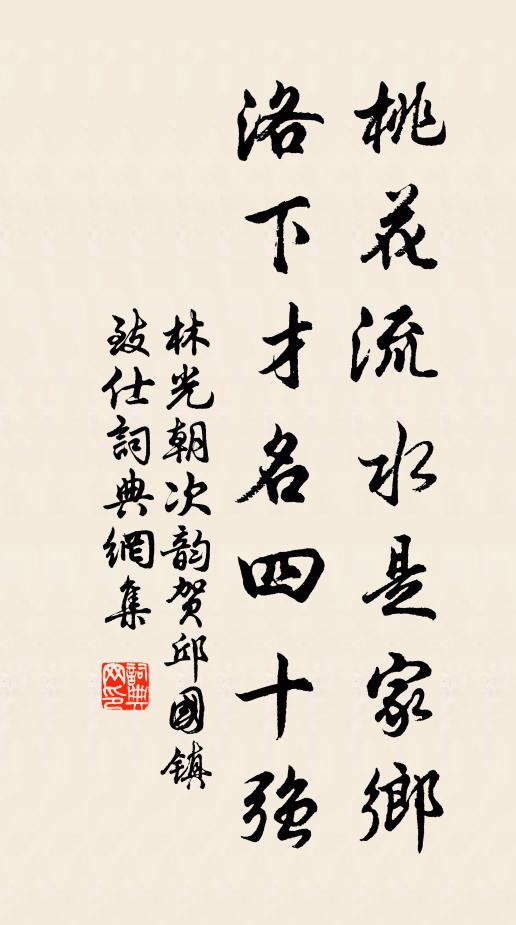 桃花流水是家鄉
洛下才名四十強
林光朝次韵贺邱國镇
致仕詞典網集
詞典网印